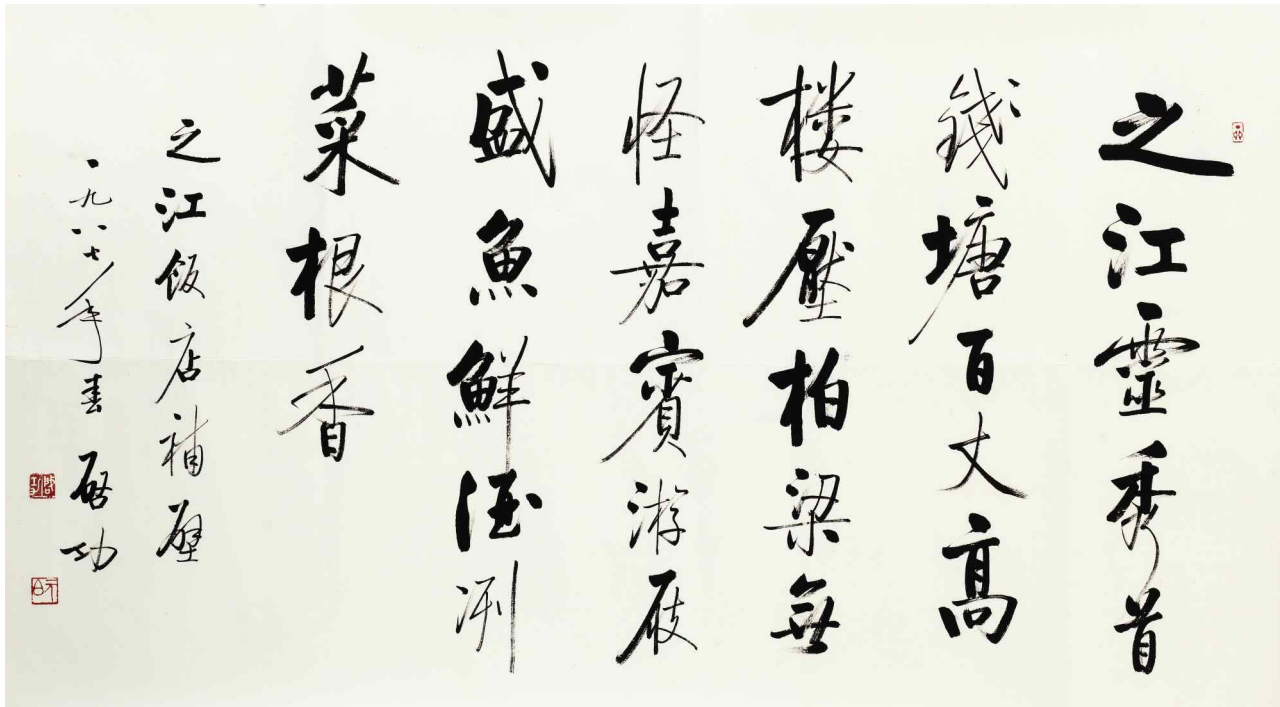 之江靈秀首
錢塘百丈高
楼壓柏梁無
怪嘉賓游屐
盛魚鮮酒洌
菜根香
之江飯店補壁
一九八七年春 啓功